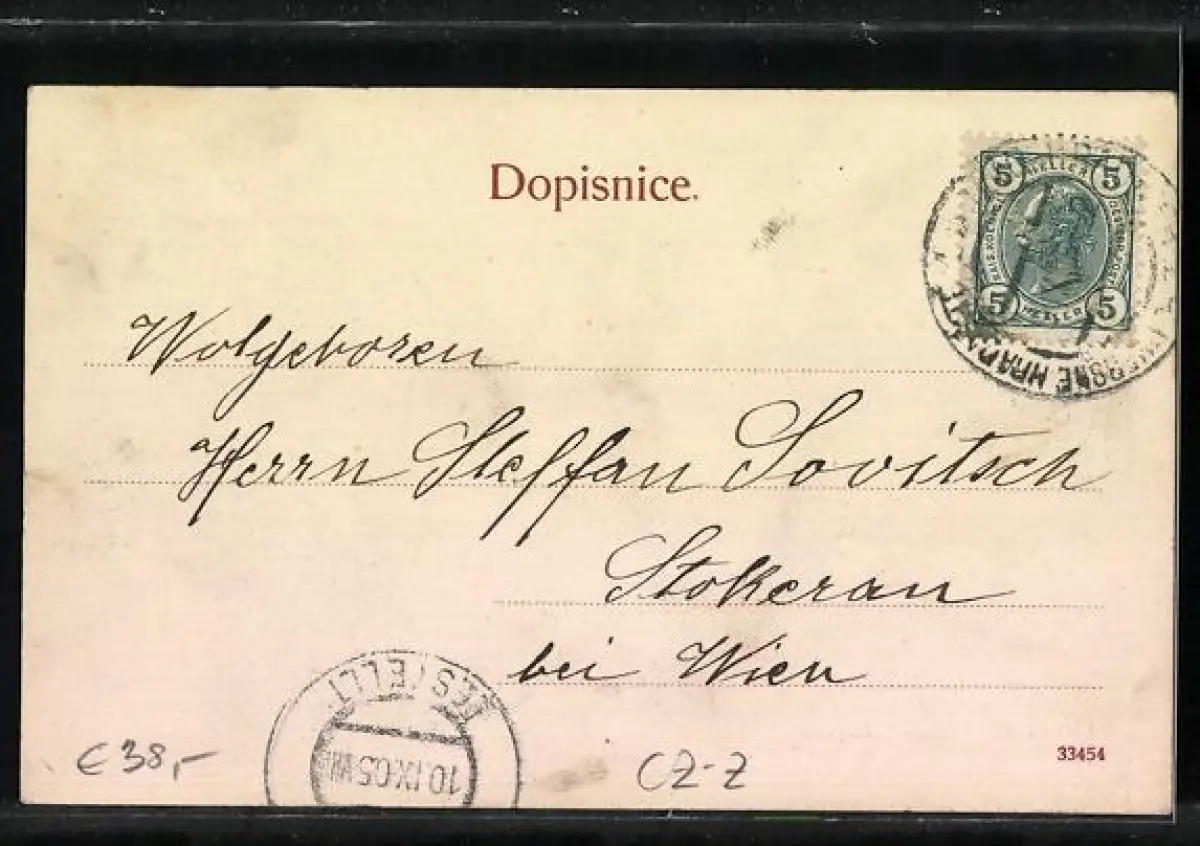 Dopisnice.
5 HELLER 5
5 HELLER 5
Wolgeboren
Herrn Steffan Sovitsch
Stokerau
bei Wien
BESTELLT
10.IX.05
€ 38,-
CZ-Z
33454